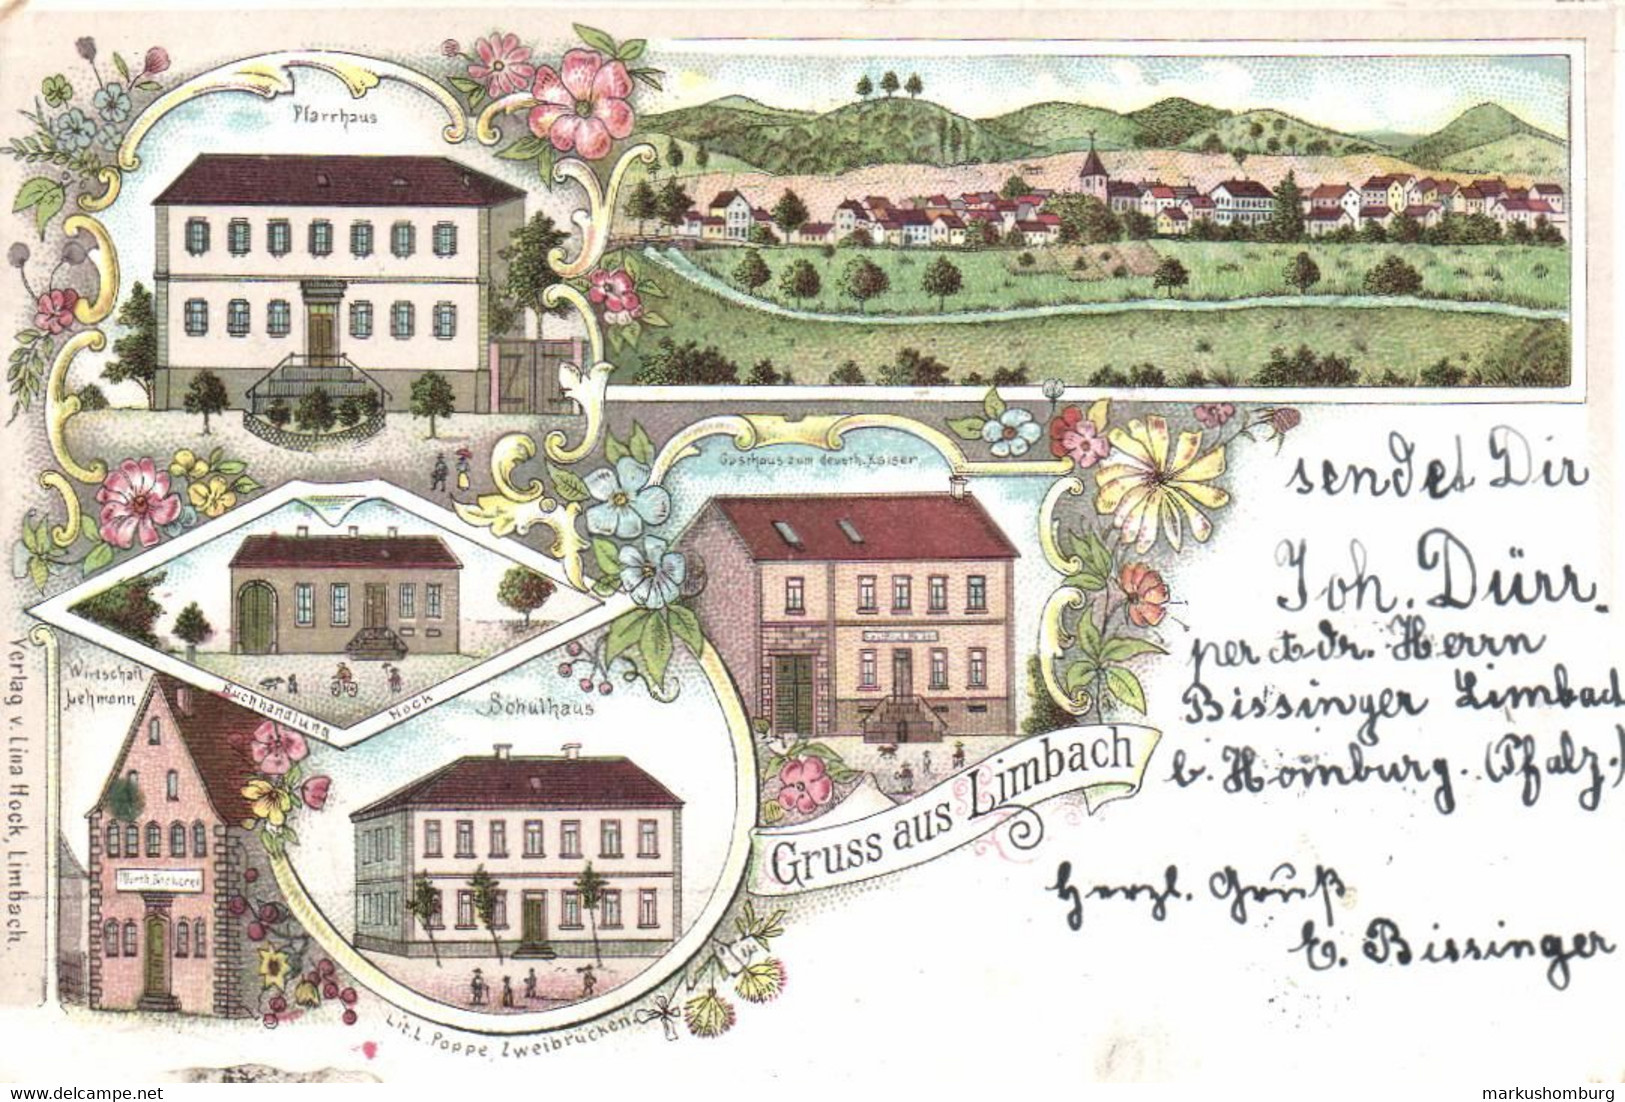 Pfarrhaus
Gasthaus zum deutsch. Kaiser
Wirtschaft
Lehmann
Buchhandlung Hock
Schulhaus
Gruss aus Limbach
sendet Dir
Joh. Dürr.
per Adr. Herrn
Bissinger Limbach
b. Homburg. (Pfalz.)
Herzl. Gruß
E. Bissinger
Verlag v. Lina Hock, Limbach.
Lit. L. Poppe, Zweibrücken.
delcampe.net
markushomburg